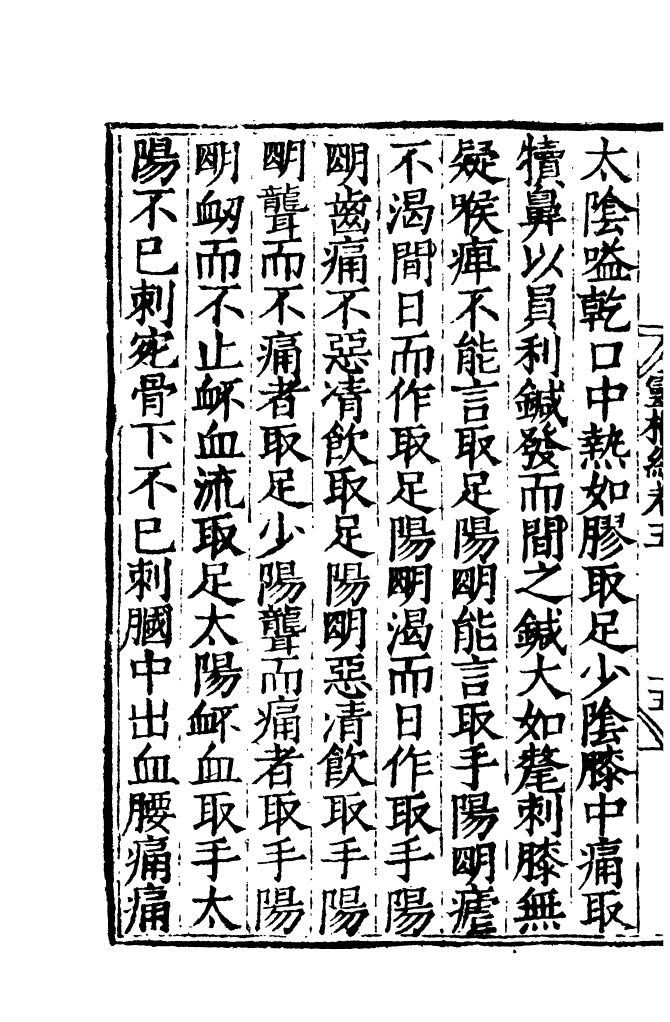 太陰嗌乾口中熱如膠取足少陰膝中痛取
犢鼻以員利鍼發而間之鍼大如氂刺膝無
疑喉痺不能言取足陽明能言取手陽明瘧
不渴間日而作取足陽明渴而日作取手陽
明齒痛不惡清飲取足陽明惡清飲取手陽
明聾而不痛者取足少陽聾而痛者取手陽
明衄而不止衃血流取足太陽衃血取手太
陽不已刺宛骨下不已刺膕中出血腰痛痛